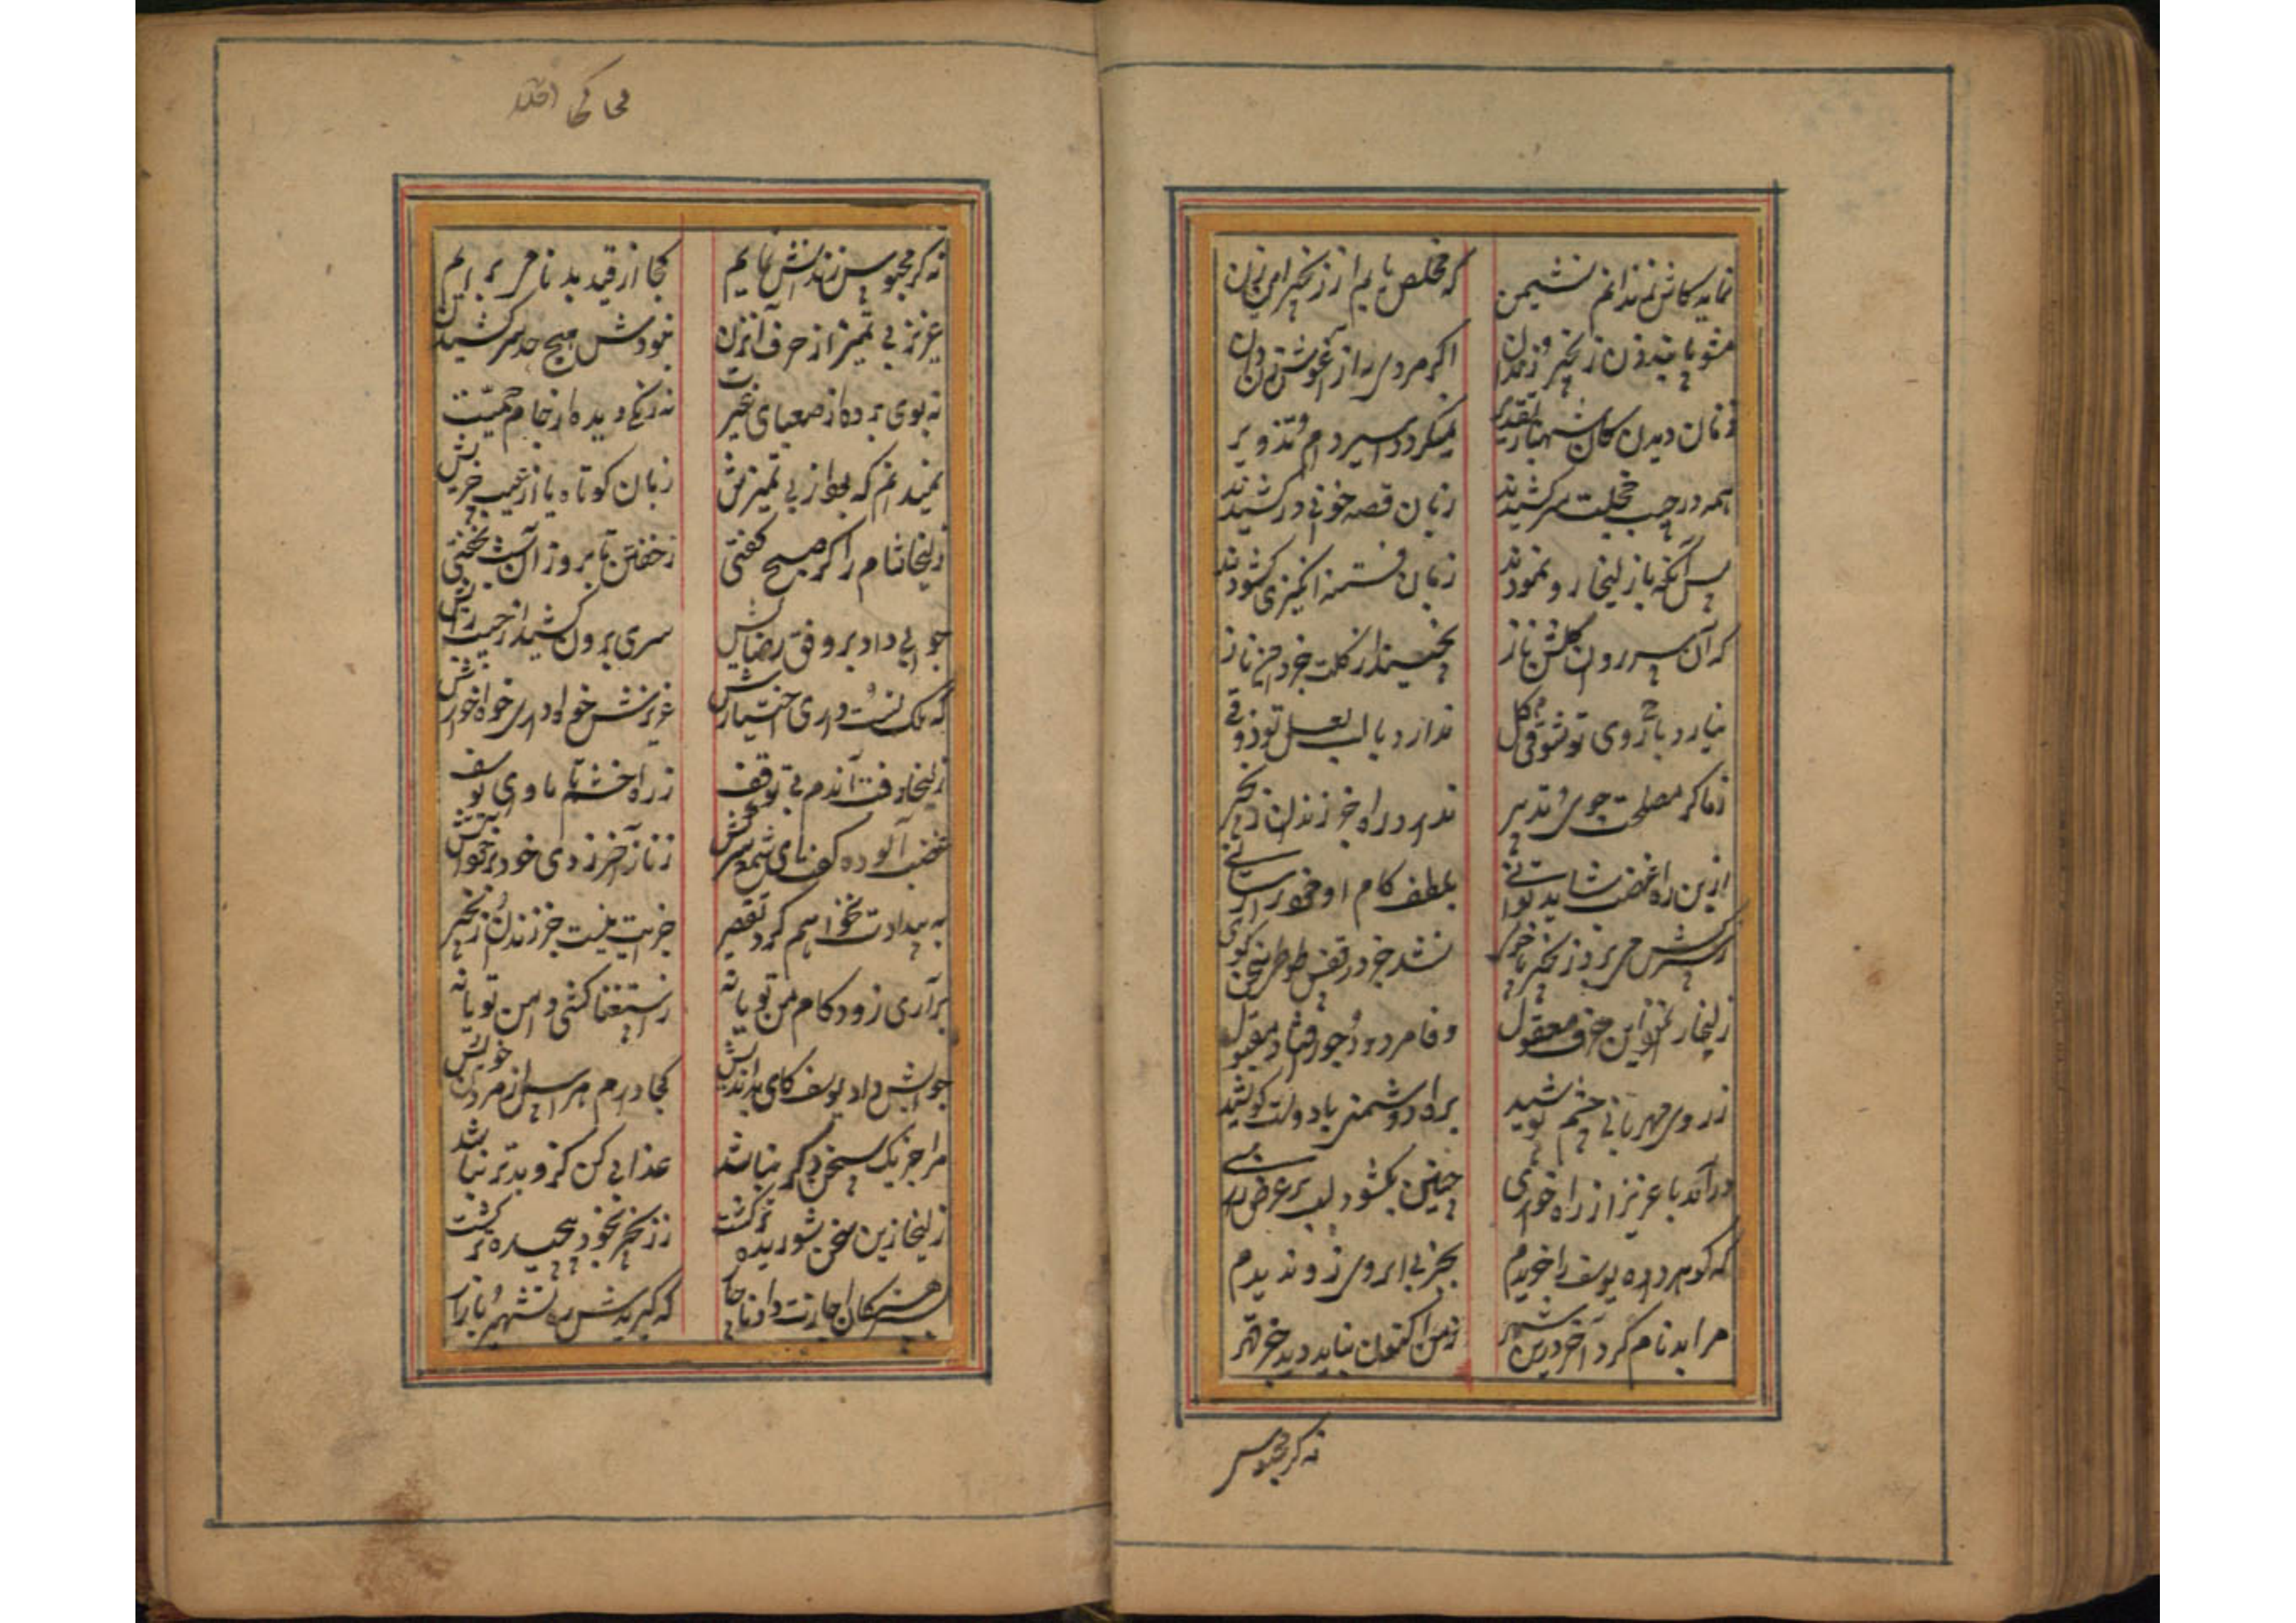 نماید کاش زندانم نشیمن که مخلص یابم از زنجیر این زن
مشو پابند زن زنجیر و زندان اگر مردی
زنان دیدن کان شهباز تقدیر نمیگردد اسیر دام تزویر
همه در جیب خجلت سر کشیدند زبان قصه خوانی در کشیدند
پس آنگه با زلیخا رو نمودند زبان فتنه انگیزی کشودند
که آن سرو روان گلشن ناز نچیند از گلت جز خرمن ناز
نیارد با روی تو شوقی ندارد با لب لعل تو ذوقی
ز ما گر مصلحت جوئی و تدبیر ندارد راه جز زندان و زنجیر
ازین راه غضب شاید توانی بلطف کام او خود را رسانی
نشد جز در قفس طوطی سخن گوی
زلیخا را این حرف معقول وفا مردود و جور افتاد مقبول
ز روی مهربانی چشم پوشید براه دشمنی با دولت کوشید
درآمد با عزیز از راه خواری چنین بکشود لب بر عرض
که گوهر داده یوسف را خریدم بجز بی ابروی زو ندیدم
مرا بدنام کرد آخر درین شهر ز من اکنون نباید دید جز قهر
نه گر محبوس
نه گر محبوس زندانش نمایم کجا از قید بدنامی برایم
عزیز بی تمیز از حرف آن زن نبودش هیچ حد سر کشیدن
نه بوی برده از صهبای غیرت نه رنگی دیده از جام حمیت
نمیدانم که بود از بی تمیزیش زبان کوتاه یا از عیب خریش
زلیخا شام را گر صبح گفتی ز خفتن تا بروز آن شب نخفتی
جوابی داد بر وفق رضایش سری برون کشید از جیب رایش
که ملک تست داری اختیارش عزیزش خواه داری خواه خوارش
زلیخا رفت آندم بی توقف ز راه خشم تا ماوای یوسف
غضب آلوده گفت ای شمع سرکش زدی خود را بر آتش
به بیدادت نخواهم کرد تقصیر جزایت نیست جز زندان و زنجیر
برآری زود کام من تو یا نه ز استغنا کشی دامن تو یا نه
جوابش داد یوسف کای بداندیش کجا دارم هراس از مردن خویش
مرا جز یک سخن دیگر نباشد عذابی کن کزو بدتر نباشد
زلیخا زین سخن شوریده تر گشت ز زنجیر بخود پیچیده تر گشت
بسرهنگان اجازت داد ناچار که گیریدش رهٔ شهر و بازار